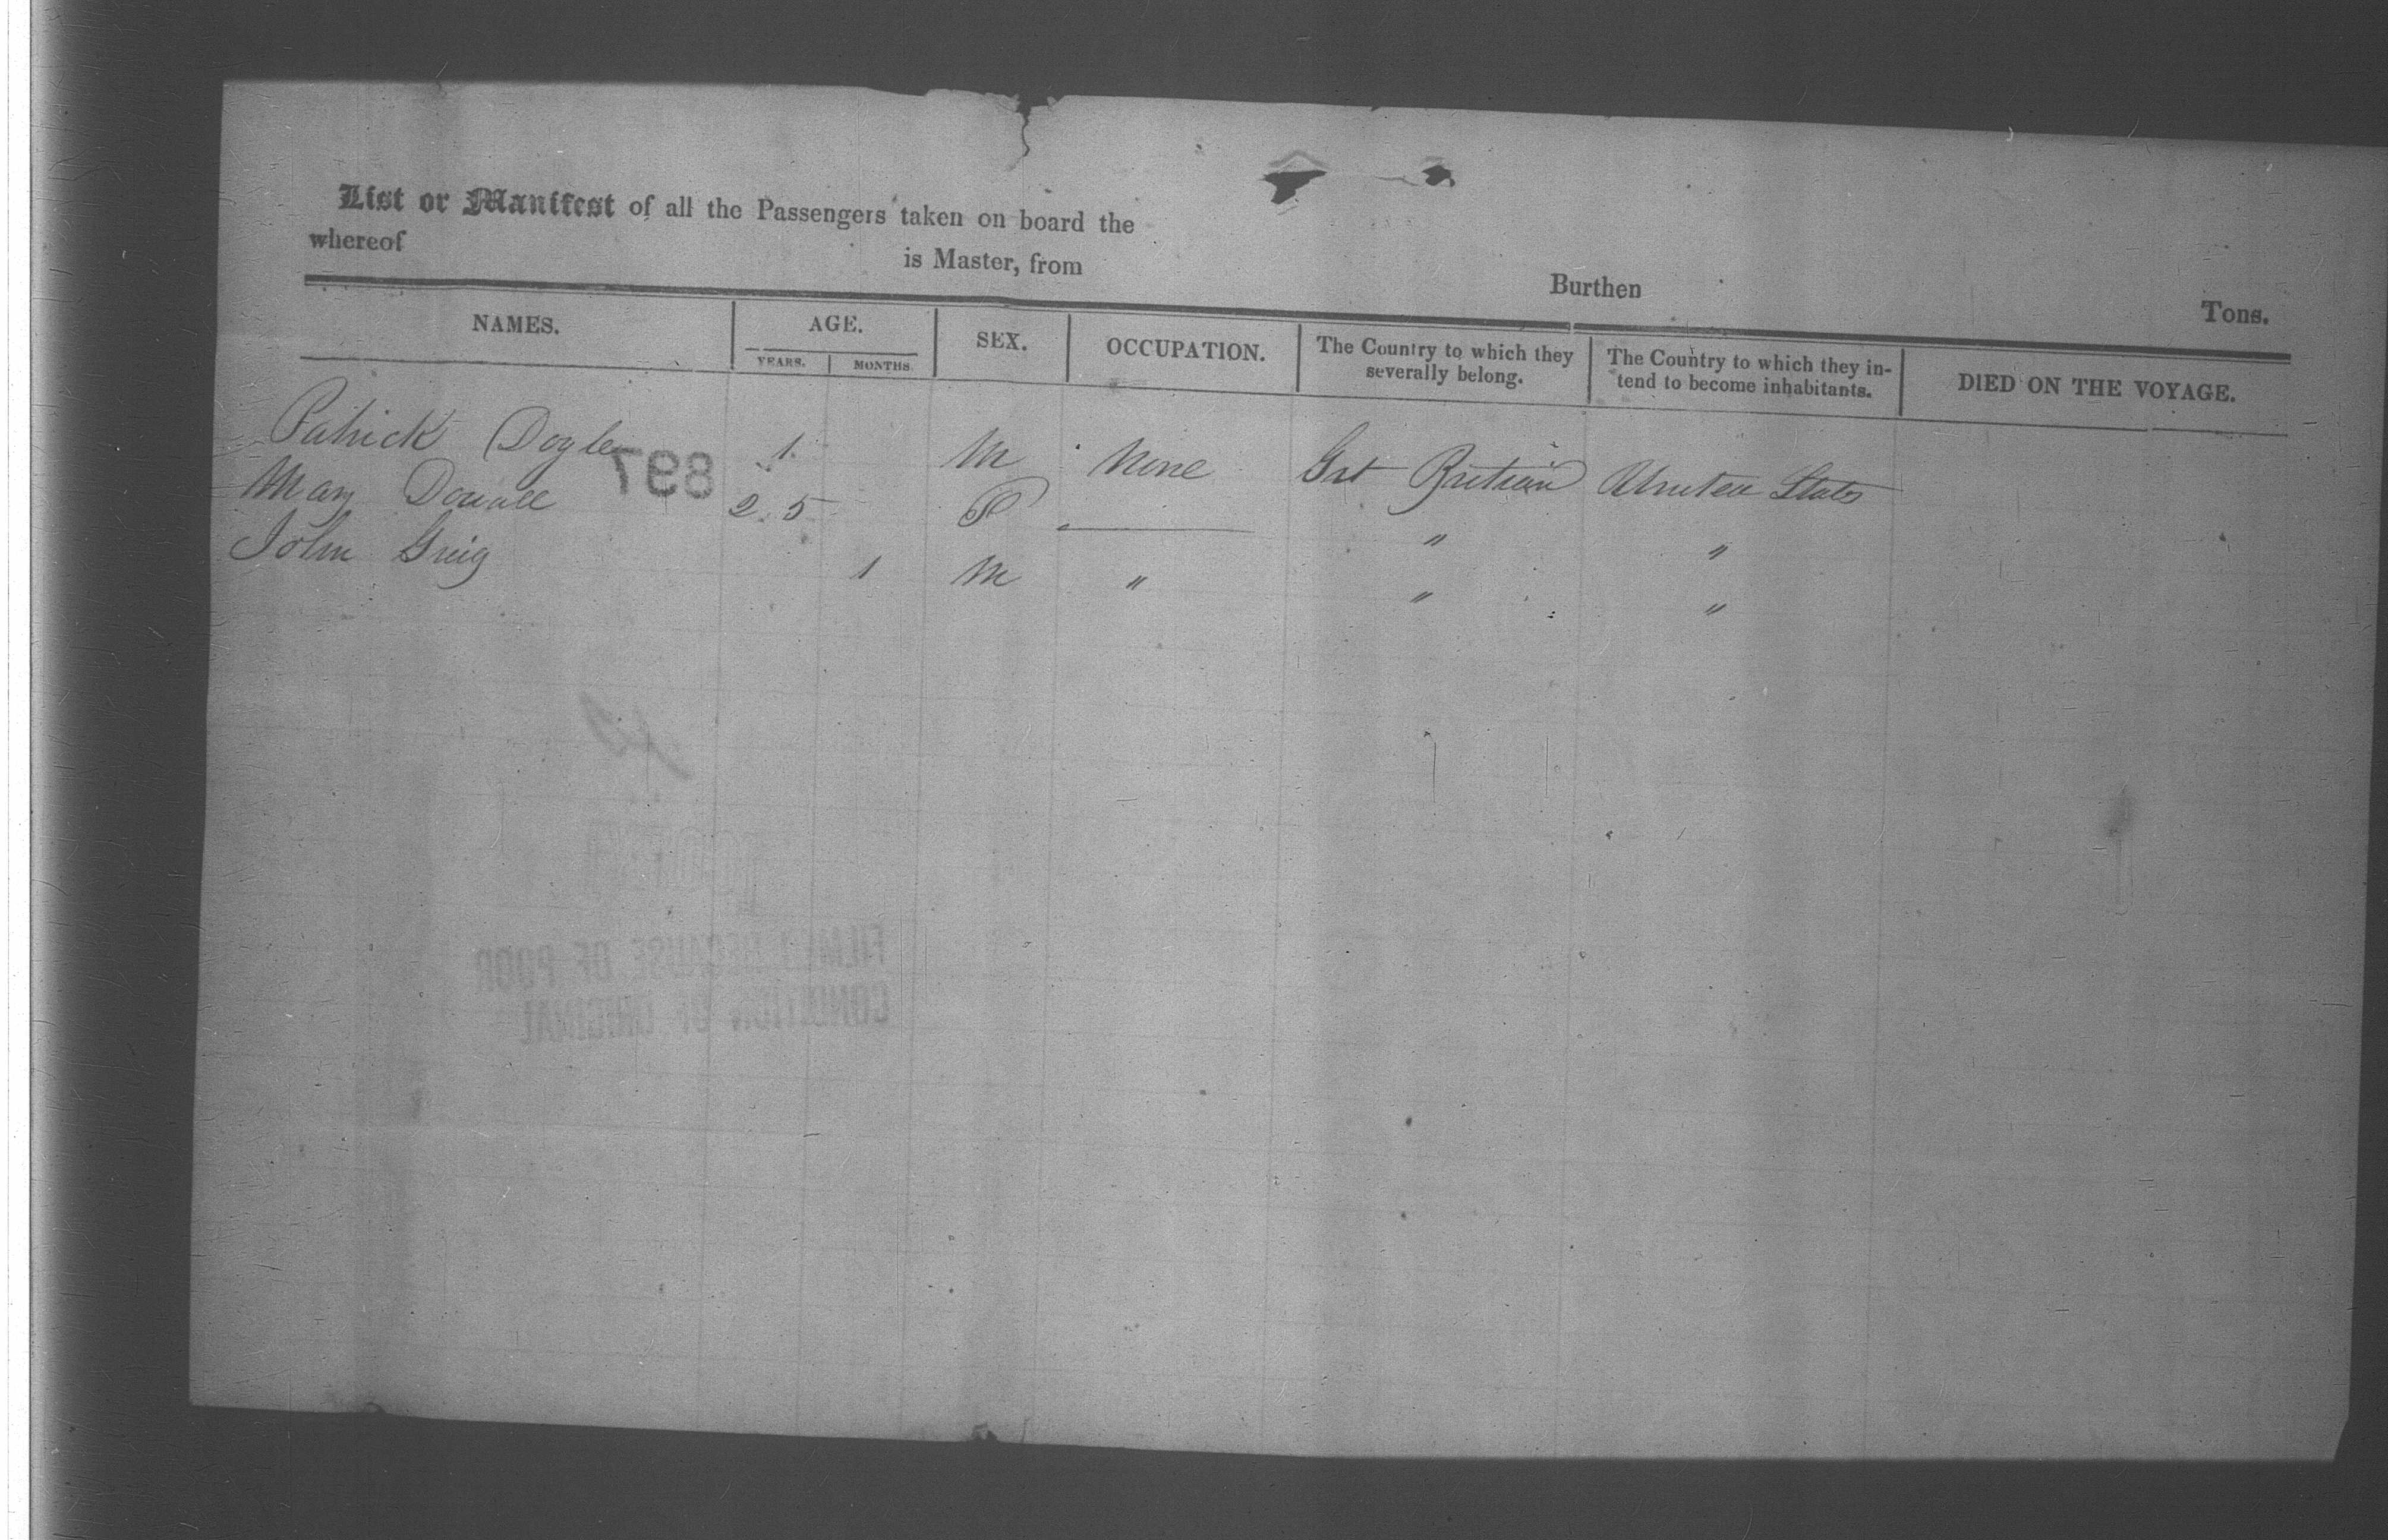 List or Manifest of all the Passengers taken on board the
whereof is Master, from Burthen Tons.
NAMES. AGE. SEX. OCCUPATION. The Country to which they severally belong. The Country to which they intend to become inhabitants. DIED ON THE VOYAGE.
YEARS. MONTHS.
Patrick Doyle 1 M None Grt Britian United States
897
Mary 25 " "
John Greig 1 M " " "
FILMED BECAUSE OF POOR
CONDITION OF ORIGINAL